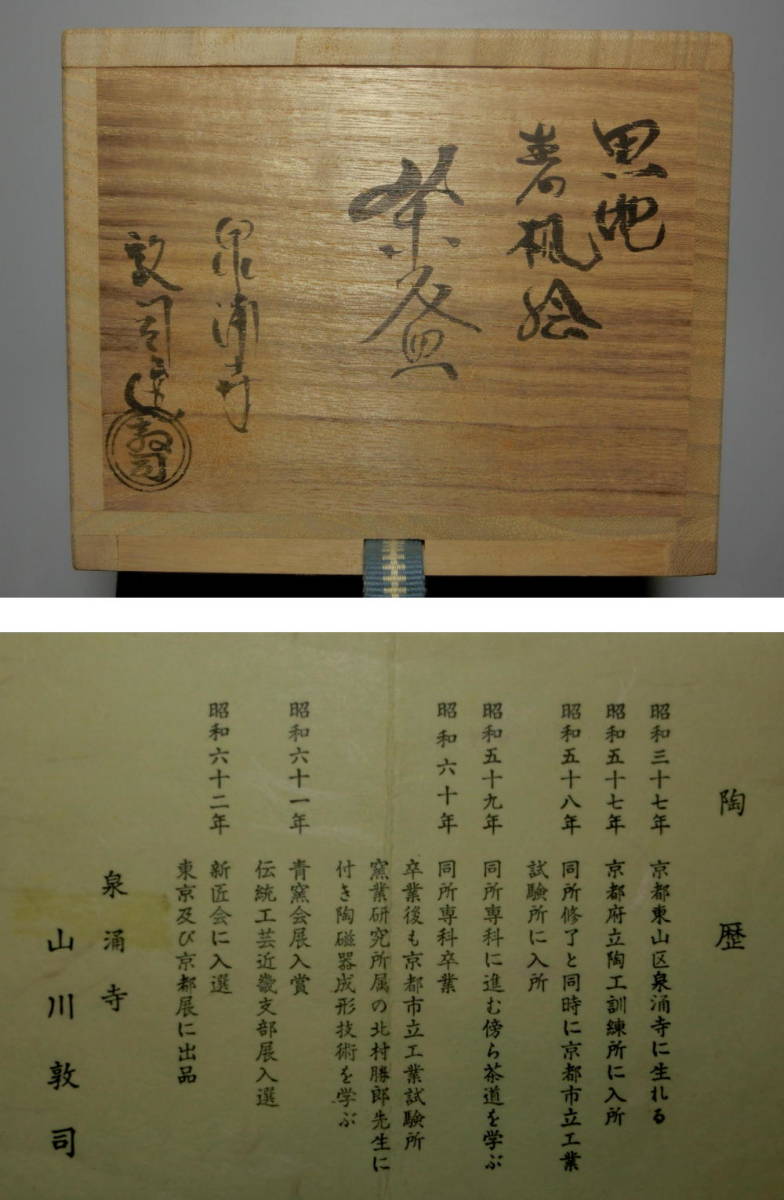 黒地
春楓絵
茶盌
泉涌寺
敦司造
敦司
陶歴
昭和三十七年 京都東山区泉涌寺に生れる
昭和五十七年 京都府立陶工訓練所に入所
昭和五十八年 同所修了と同時に京都市立工業
試験所に入所
昭和五十九年 同所専科に進む傍ら茶道を学ぶ
昭和六十年 同所専科卒業
卒業後も京都市立工業試験所
窯業研究所属の北村勝郎先生に
付き陶磁器成形技術を学ぶ
昭和六十一年 青窯会展入賞
伝統工芸近畿支部展入選
昭和六十二年 新匠会に入選
東京及び京都展に出品
泉涌寺
山川敦司